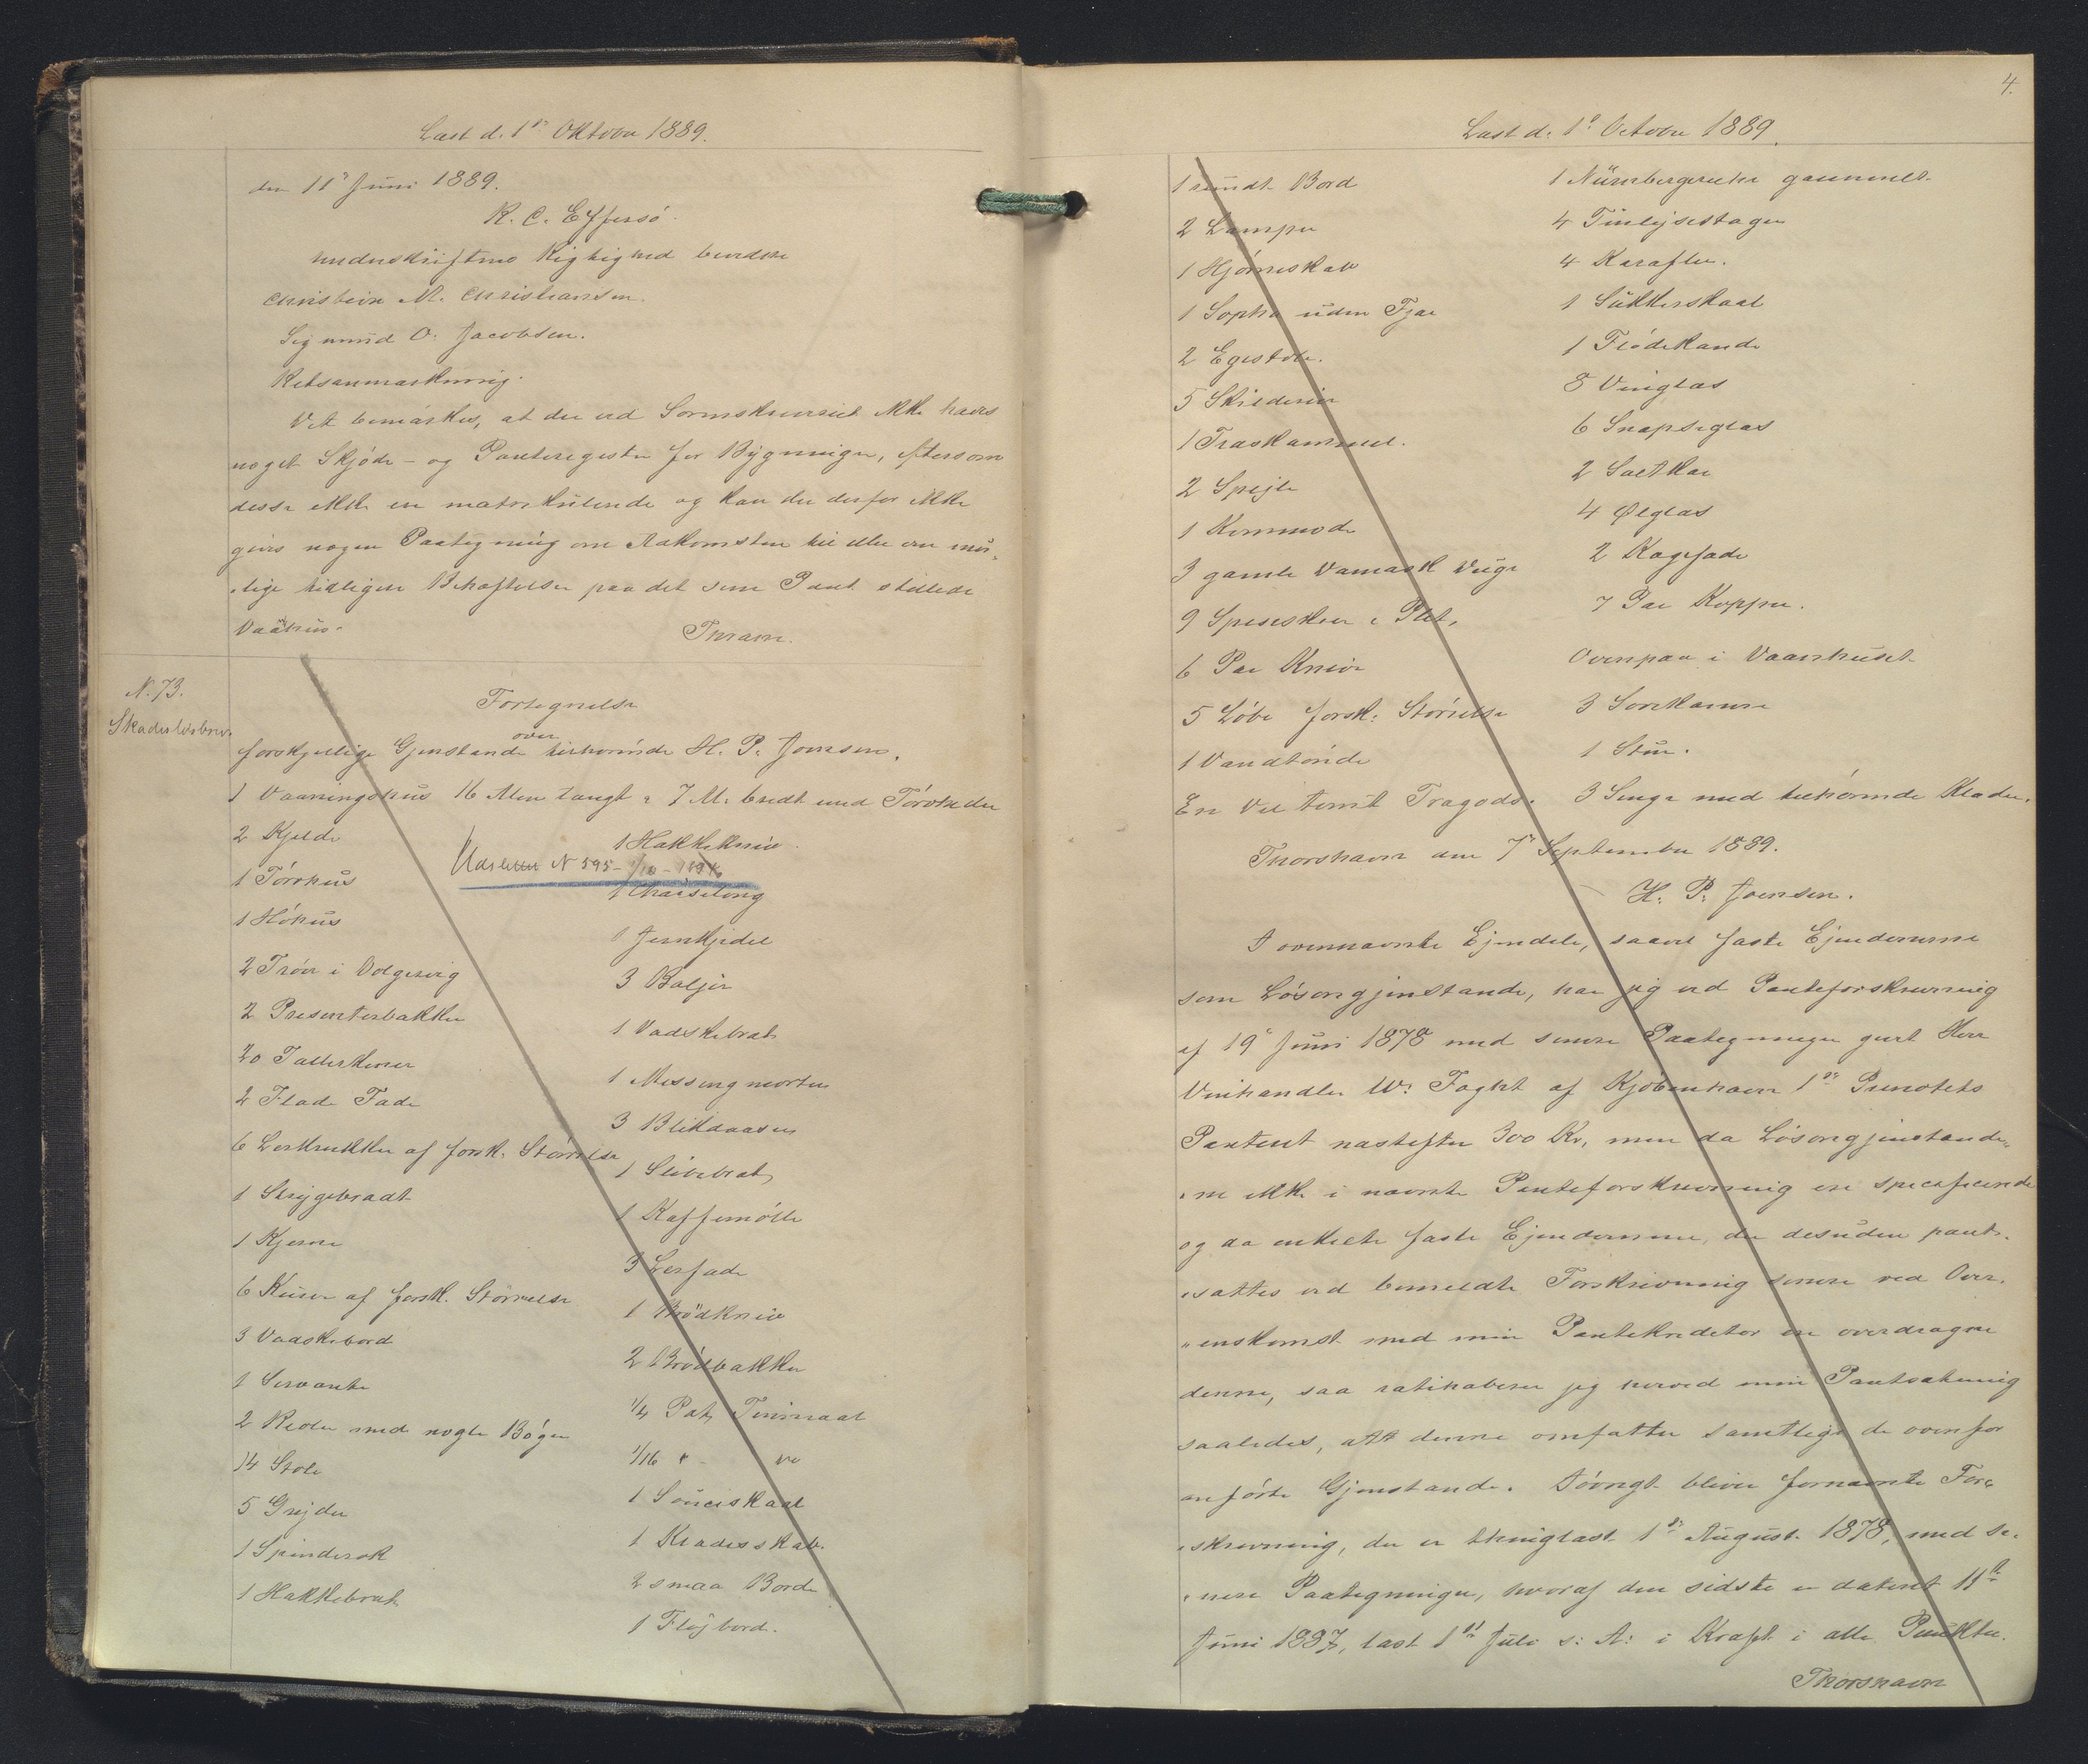 Læst d. 1st Oktober 1889.
den 11te Juni 1889.
R. C. Effersö.
underskriftens Rigtighed bevidne
Christein M. Christiansen.
Sigmund O. Jacobsen.
Retsanmærkning.
Det bemærkes, at der ved Sorenskriveriet ikke haves
noget Skjøde- og Panteregister for Bygninger, eftersom
disse ikke ere matrikulerede og kan der derfor ikke
gives nogen Paategning om Adkomsten til eller om mu-
-lige tidligere Behæftelser paa det som Pant stillede
Vaahus.
N. 73.
Skadesløsbrev
Fortegnelse
over
forskjellige Gjenstande tilhørende H. P. Joensen.
1 Vaaningshus 16 Alen langt, 7 Al. bredt med Tørvkjelder
2 Kjelde
1 Tørrhus
1 Höhus
2 Tröer i Dolgevig
2 Presenterbakker
20 Tallerkener
2 Flade Fade
6 Lerkrukker af forsk. Størrelse
1 Strygebradt
1 Kjerne
6 Kruser af forsk. Størrelse
3 Vadskebord
1 Servante
2 Reoler med nogle Bøger
14 Stole
5 Gryder
1 Spinderok
1 Hakkebræt
1 Hakkekniv.
Udslettet N 595 - 1/10 - 1896
1 Chaiselong
1 Jernkjedel
3 Baljer
1 Vadskebræt
1 Messingmorter
3 Blikdaaser
1 Slibebræt
1 Kaffemølle
3 Lerfade
1 Brödkniv
2 Brödbakker
1/4 Pot Tinmaal
1/16 " - do
1 Souceskaal
1 Klædesskab.
2 smaa Borde
1 Fløjbord.
4.
Læst d. 1st October 1889.
1 rundt Bord
2 Lamper
1 Hjørneskab
1 Sopha uden Fjær
2 Egestole.
5 Skilderier
1 Træskammel.
2 Spejle
1 Kommode
3 gamle Damask Duge
9 Speseskeer i Plet.
6 Par Knive
5 Løbe forsk. Størrelse
1 Vandtønde
En Del tomt Trægods.
1 Nürnbergeruhr gammelt
4 Tinlysestager
4 Karafler.
1 Sukkerskaal
1 Flødekande
8 Vinglas
6 Snapseglas
2 Saltkar
4 Ølglas
2 Kagefade
7 Par Kopper.
Ovenpaa i Vaanhuset
3 Sovekamre
1 Stue.
3 Senge med tilhørende Klæder.
Thorshavn den 7de September 1889.
H. P. Joensen.
I ovennævnte Ejendele, saavel faste Ejendomme
som Løsøregjenstande, har jeg ved Panteforskrivning
af 19de Juni 1878 med senere Paategninger givet Herr
Vinhandler W. Foght af Kjøbenhavn 1ste Prioritets
Panteret næstefter 300 Kr, men da Løsøregjenstande-
-ne ikke i nævnte Panteforskrivning ere specificerede
og da enkelte faste Ejendomme, der desuden pant-
-sattes ved bemeldte Forskrivning senere ved Over-
-enskomst med min Pantekreditor ere overdragne
denne, saa ratihaberer jeg herved min Pantsætning
saaledes, att denne omfatter samtlige de ovenfor
anførte Gjenstande. Iøvrigt bliver fornævnte For-
-skrivning, der er thinglæst 1ste August 1878, med se-
-nere Paategninger, hvoraf den sidste er dateret 11te
Juni 1887, læst 1ste Juli s. A. i Kraft i alle Punkter.
Thorshavn